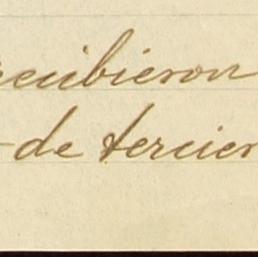 recibieron
de tercier